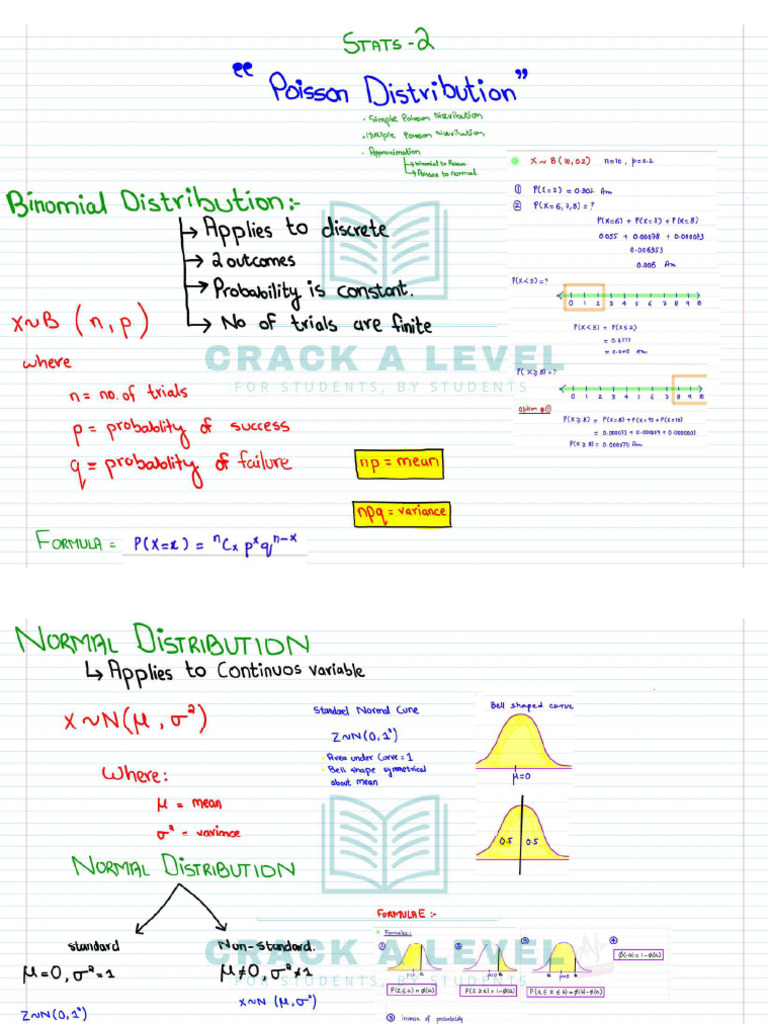 STATS-2
"Poisson Distribution"
· Simple Poisson Distribution
· Multiple Poisson Distribution
· Approximation
↳ Binomial to Poisson
↳ Poisson to normal.
Binomial Distribution:-
→ Applies to discrete
→ 2 outcomes
→ Probability is constant.
→ No of trials are finite
X~B (n, p)
where
n = no. of trials
p = probability of success
q = probability of failure
np = mean
npq = variance
FORMULA = P(X=x) = ⁿCₓ pˣ qⁿ⁻ˣ
X ~ B (10, 0.2) n=10, p=0.2
① P(X=2) = 0.302 Ans
② P(X=6,7,8) = ?
P(X=6) + P(X=7) + P(X=8)
0.055 + 0.00078 + 0.000073
0.006353
0.006 Ans
P(X<3) = ?
0 1 2 3 4 5 6 7 8 9 10
P(X<3) = P(X≤2)
= 0.6777
P(X≥8) = ?
0 1 2 3 4 5 6 7 8 9 10
P(X≥8) = P(X=8) + P(X=9) + P(X=10)
CRACK A LEVEL
FOR STUDENTS, BY STUDENTS
NORMAL DISTRIBUTION
↳ Applies to Continuos variable
X~N(μ, σ²)
Where:
μ = mean
σ² = variance
Standard Normal Curve
Z~N(0,1²)
· Area under Curve = 1
· Bell shape symmetrical
about mean
Bell shaped curve
μ=0
0.5 0.5
NORMAL DISTRIBUTION
Standard
μ=0, σ²=1
Z~N(0,1²)
Non-standard.
μ≠0, σ²≠1
X~N (μ, σ²)
FORMULAE :-
Formulas:
① ② ③ ④
P(Z≤a) = φ(a)
P(Z≥a) = 1-φ(a)
P(a≤Z≤b) = φ(b)-φ(a)
φ(-a) = 1-φ(a)
⑤ Inverse of probability
CRACK A LEVEL
FOR STUDENTS, BY STUDENTS